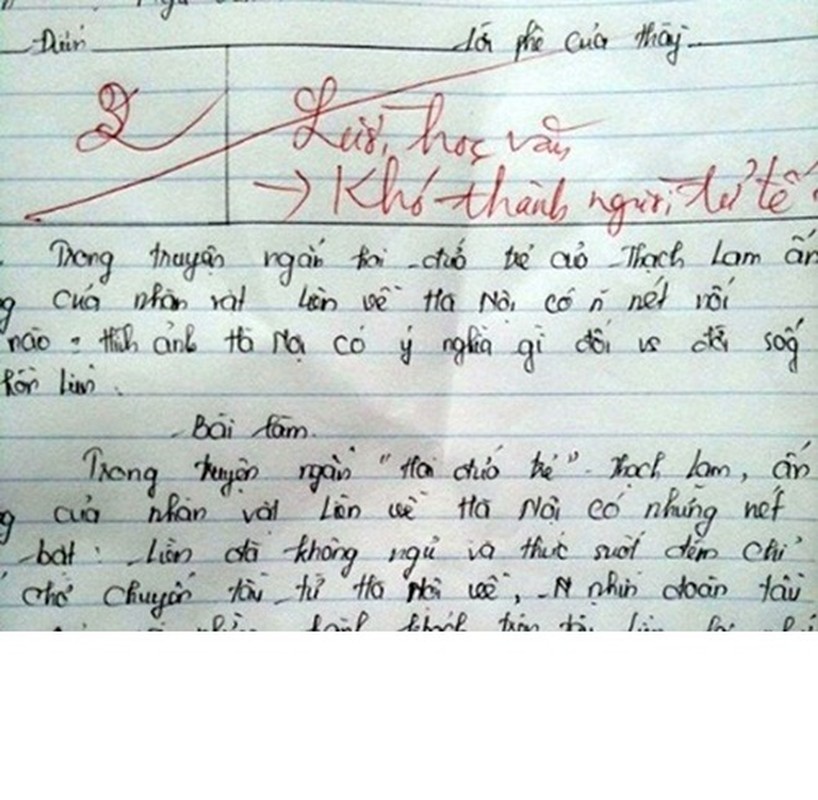 Điểm Lời phê của thầy
2 Lười học văn
→ Khó thành người tử tế
Trong truyện ngắn Hai đứa trẻ của Thạch Lam ấn
của nhân vật Liên về Hà Nội có n nét nổi
nào? Hình ảnh Hà Nội có ý nghĩa gì đối vs đời sốg
hồn Liên.
Bài làm
Trong truyện ngắn "Hai đứa trẻ". Thạch Lam, ấn
g của nhân vật Liên về Hà Nội có những nét
bật: Liên đã không ngủ và thức suốt đêm chỉ
chờ chuyến tàu từ Hà Nội về, N nhìn đoàn tàu